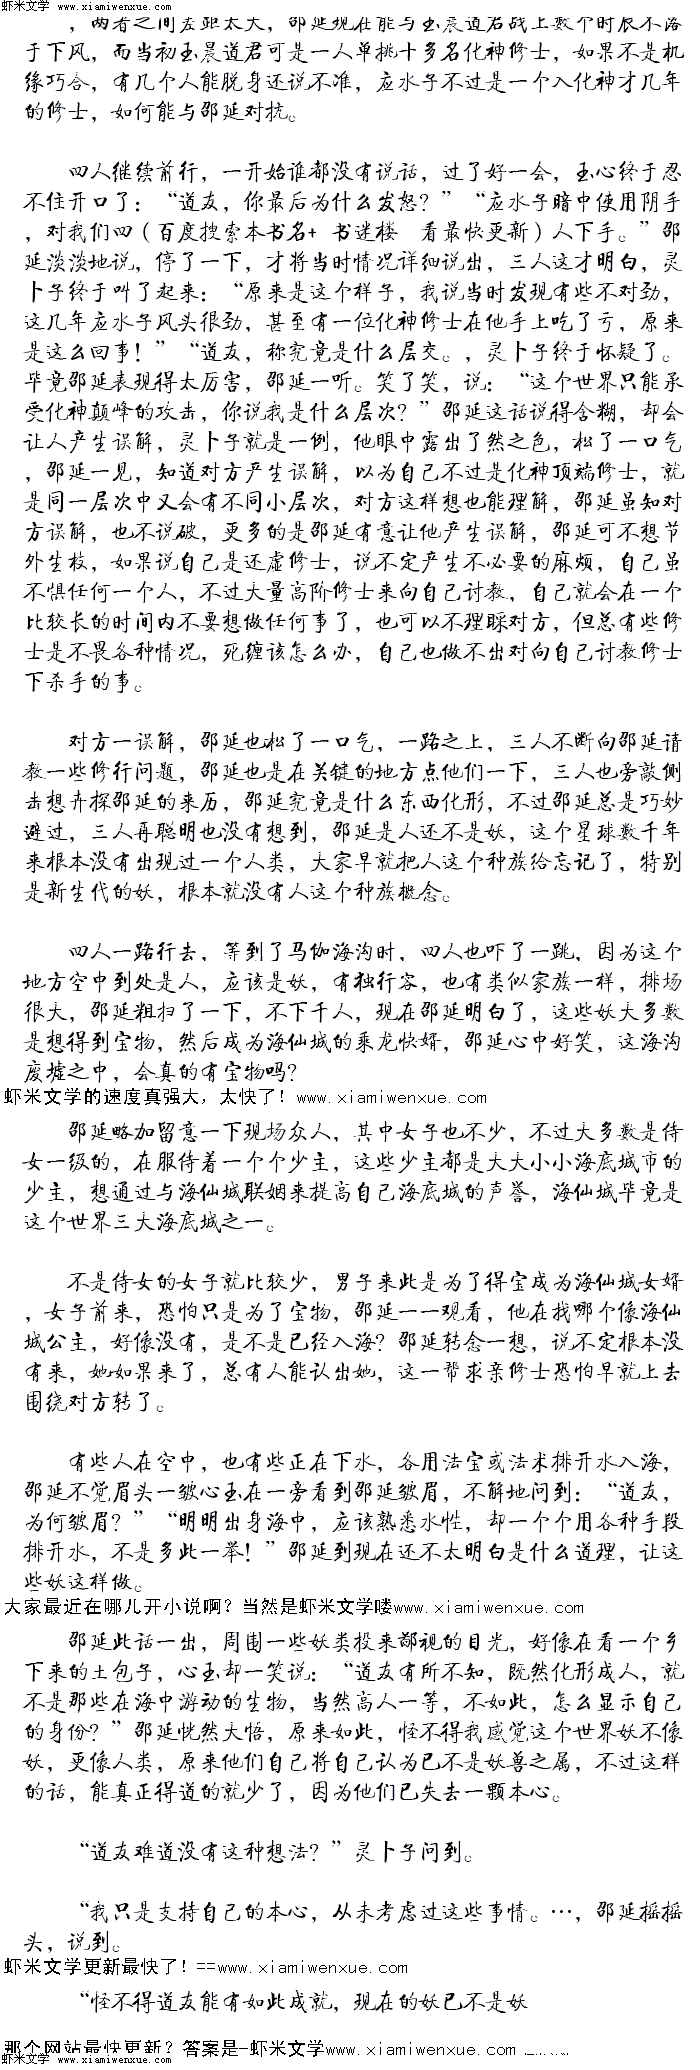 虾米文学 www.xiamiwenxue.com
，两者之间差距太大，邵延现在能与玉晨道君战上数个时辰不落
于下风，而当初玉晨道君可是一人单挑十多名化神修士，如果不是机
缘巧合，有几个人能脱身还说不准，应水子不过是一个入化神才几年
的修士，如何能与邵延对抗。
四人继续前行，一开始谁都没有说话，过了好一会，玉心终于忍
不住开口了：“道友，你最后为什么发怒？”“应水子暗中使用阴手
，对我们四（百度搜索本书名+ 书迷楼 看最快更新）人下手。”邵
延淡淡地说，停了一下，才将当时情况详细说出，三人这才明白，灵
卜子终于叫了起来：“原来是这个样子，我说当时发现有些不对劲，
这几年应水子风头很劲，甚至有一位化神修士在他手上吃了亏，原来
是这么回事！”“道友，称究竟是什么层交。，灵卜子终于怀疑了。
毕竟邵延表现得太厉害，邵延一听。笑了笑，说：“这个世界只能承
受化神巅峰的攻击，你说我是什么层次？”邵延这话说得含糊，却会
让人产生误解，灵卜子就是一例，他眼中露出了然之色，松了一口气
，邵延一见，知道对方产生误解，以为自己不过是化神顶端修士，就
是同一层次中又会有不同小层次，对方这样想也能理解，邵延虽知对
方误解，也不说破，更多的是邵延有意让他产生误解，邵延可不想节
外生枝，如果说自己是还虚修士，说不定产生不必要的麻烦，自己虽
不惧任何一个人，不过大量高阶修士来向自己讨教，自己就会在一个
比较长的时间内不要想做任何事了，也可以不理睬对方，但总有些修
士是不畏各种情况，死缠该怎么办，自己也做不出对向自己讨教修士
下杀手的事。
对方一误解，邵延也松了一口气，一路之上，三人不断向邵延请
教一些修行问题，邵延也是在关键的地方点他们一下，三人也旁敲侧
击想卉探邵延的来历，邵延究竟是什么东西化形，不过邵延总是巧妙
避过，三人再聪明也没有想到，邵延是人还不是妖，这个星球数千年
来根本没有出现过一个人类，大家早就把人这个种族给忘记了，特别
是新生代的妖，根本就没有人这个种族概念。
四人一路行去，等到了马伽海沟时，四人也吓了一跳，因为这个
地方空中到处是人，应该是妖，有独行客，也有类似家族一样，排场
很大，邵延粗扫了一下，不下千人，现在邵延明白了，这些妖大多数
是想得到宝物，然后成为海仙城的乘龙快婿，邵延心中好笑，这海沟
废墟之中，会真的有宝物吗？
虾米文学的速度真强大，太快了！www.xiamiwenxue.com
邵延略加留意一下现场众人，其中女子也不少，不过大多数是侍
女一级的，在服侍着一个个少主，这些少主都是大大小小海底城市的
少主，想通过与海仙城联姻来提高自己海底城的声誉，海仙城毕竟是
这个世界三大海底城之一。
不是侍女的女子就比较少，男子来此是为了得宝成为海仙城女婿
，女子前来，恐怕只是为了宝物，邵延一一观看，他在找哪个像海仙
城公主，好像没有，是不是已经入海？邵延转念一想，说不定根本没
有来，她如果来了，总有人能认出她，这一帮求亲修士恐怕早就上去
围绕对方转了。
有些人在空中，也有些正在下水，各用法宝或法术排开水入海，
邵延不觉眉头一皱心玉在一旁看到邵延皱眉，不解地问到：“道友，
为何皱眉？”“明明出身海中，应该熟悉水性，却一个个用各种手段
排开水，不是多此一举！”邵延到现在还不太明白是什么道理，让这
些妖这样做。
大家最近在哪儿开小说啊？当然是虾米文学喽www.xiamiwenxue.com
邵延此话一出，周围一些妖类投来鄙视的目光，好像在看一个乡
下来的土包子，心玉却一笑说：“道友有所不知，既然化形成人，就
不是那些在海中游动的生物，当然高人一等，不如此，怎么显示自己
的身份？”邵延恍然大悟，原来如此，怪不得我感觉这个世界妖不像
妖，更像人类，原来他们自己将自己认为已不是妖兽之属，不过这样
的话，能真正得道的就少了，因为他们已失去一颗本心。
“道友难道没有这种想法？”灵卜子问到。
“我只是支持自己的本心，从未考虑过这些事情。…，邵延摇摇
头，说到。
虾米文学更新最快了！==www.xiamiwenxue.com
“怪不得道友能有如此成就，现在的妖已不是妖
那个网站最快更新？答案是-虾米文学www.xiamiwenxue.com
虾米文学 www.xiamiwenxue.com